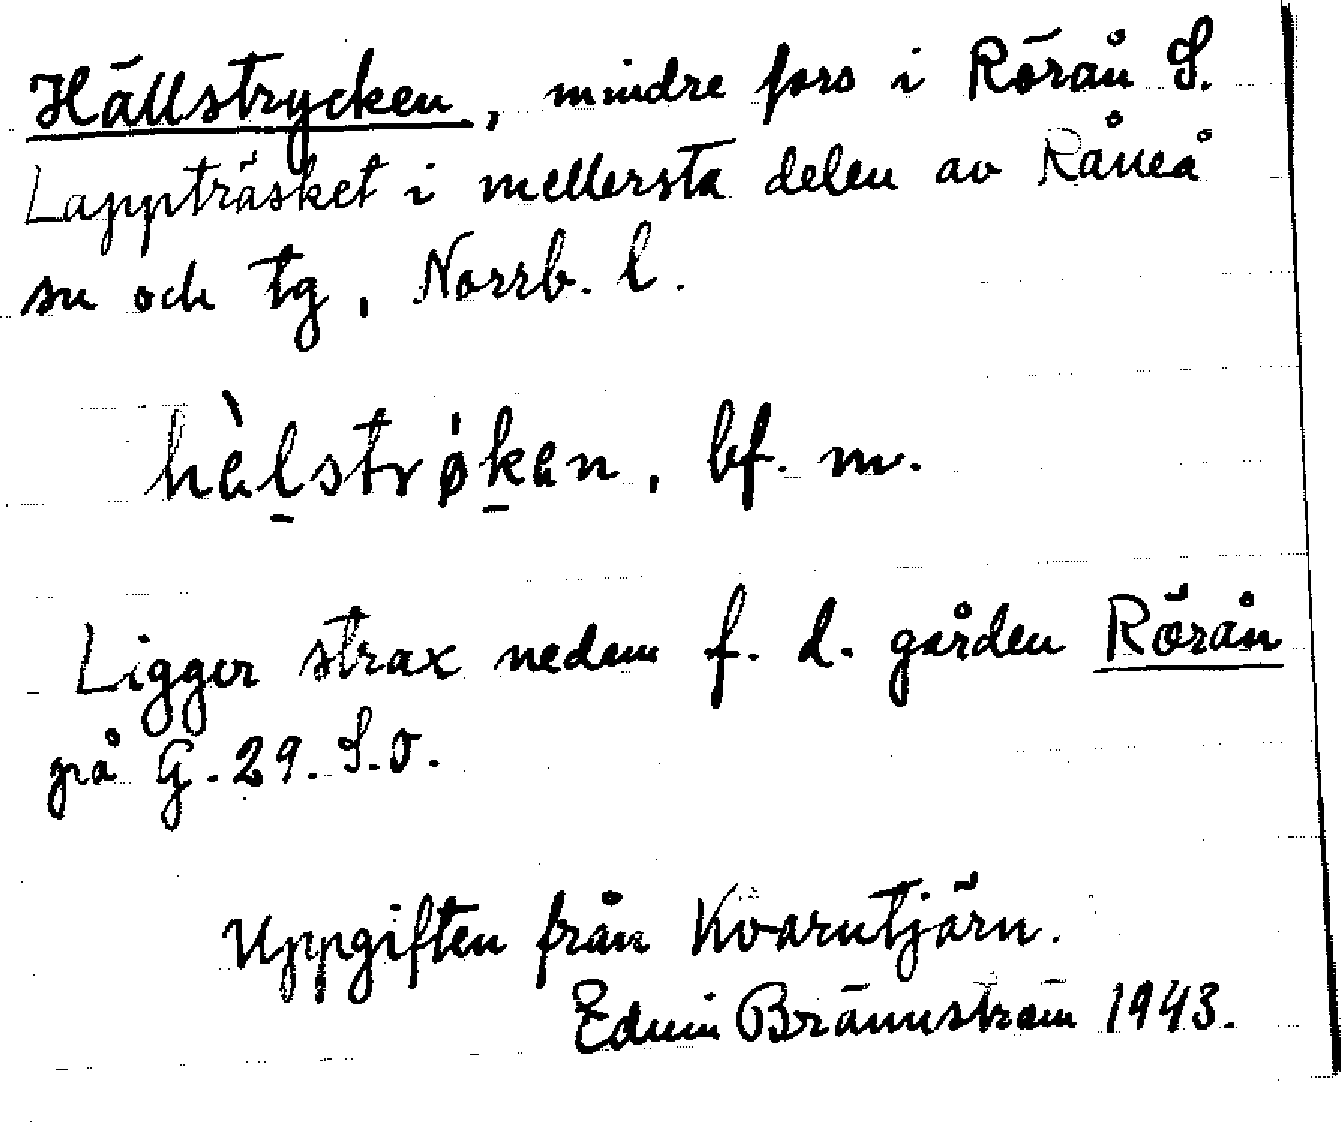 Hällstrycken, mindre fors i Rörån S.
Lappträsket i mellersta delen av Råneå
sn och tg, Norrb. l.
hèl̠strø̍k̠en, bf. m.
Ligger strax nedom f. d. gården Rörån
på G. 29. S.O.
Uppgiften från Kvarntjärn.
Edvin Brännström 1943.